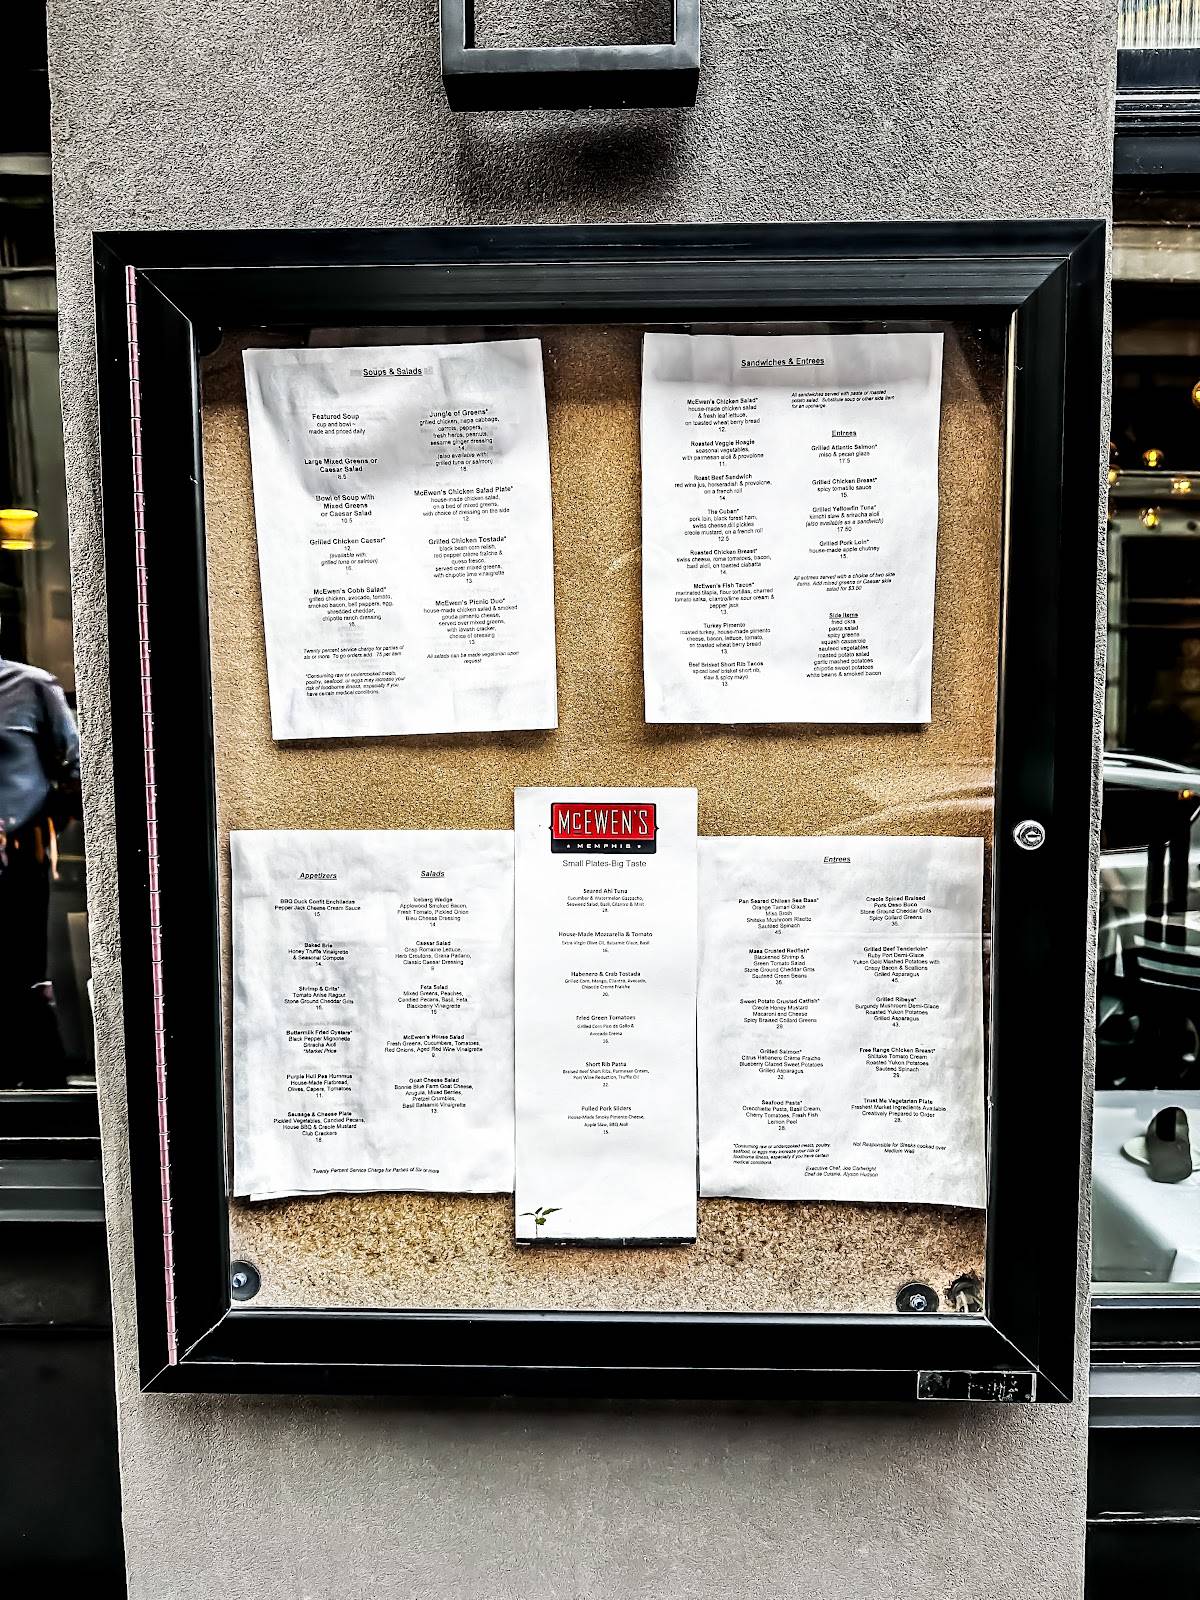 Soups & Salads
Featured Soup
cup and bowl ~
made and priced daily
Large Mixed Greens or
Caesar Salad
8.5
Bowl of Soup with
Mixed Greens
or Caesar Salad
10.5
Grilled Chicken Caesar*
12
(available with:
grilled tuna or salmon)
16.
McEwen's Cobb Salad*
grilled chicken, avocado, tomato,
smoked bacon, bell peppers, egg,
shredded cheddar,
chipotle ranch dressing
Twenty percent service charge for parties of
six or more. To go orders add .75 per item
*Consuming raw or undercooked meats,
poultry, seafood, or eggs may increase your
risk of foodborne illness, especially if you
have certain medical conditions.
Jungle of Greens*
grilled chicken, napa cabbage,
carrots, peppers,
fresh herbs, peanuts,
sesame ginger dressing
(also available with:
grilled tuna or salmon)
18.
McEwen's Chicken Salad Plate*
house-made chicken salad,
on a bed of mixed greens,
with choice of dressing on the side
12.
Grilled Chicken Tostada*
black bean corn relish,
red pepper crème fraîche &
queso fresco,
served over mixed greens,
with chipotle lime vinaigrette
13.
McEwen's Picnic Duo*
house-made chicken salad & smoked
gouda pimento cheese,
served over mixed greens,
with lavash cracker,
choice of dressing
13.
All salads can be made vegetarian upon
request
Sandwiches & Entrees
McEwen's Chicken Salad*
house-made chicken salad
& fresh leaf lettuce,
on toasted wheat berry bread
12.
Roasted Veggie Hoagie
seasonal vegetables,
with parmesan aioli & provolone
11.
Roast Beef Sandwich
red wine jus, horseradish & provolone,
on a french roll
14.
The Cuban*
pork loin, black forest ham,
swiss cheese,dill pickles
creole mustard, on a french roll
12.5
Roasted Chicken Breast*
swiss cheese, roma tomatoes, bacon,
basil aioli, on toasted ciabatta
14.
McEwen's Fish Tacos*
marinated tilapia, flour tortillas, charred
tomato salsa, cilantro/lime sour cream &
pepper jack
13.
Turkey Pimento
roasted turkey, house-made pimento
cheese, bacon, lettuce, tomato,
on toasted wheat berry bread
13.
Beef Brisket Short Rib Tacos
spiced beef brisket short rib,
slaw & spicy mayo
13
All sandwiches served with pasta or roasted
potato salad. Substitute soup or other side item
for an upcharge
Entrees
Grilled Atlantic Salmon*
miso & pecan glaze
17.5
Grilled Chicken Breast*
spicy tomatillo sauce
15.
Grilled Yellowfin Tuna*
kimchi slaw & sriracha aioli
(also available as a sandwich)
17.50
Grilled Pork Loin*
house-made apple chutney
15.
All entrees served with a choice of two side
items. Add mixed greens or Caesar side
salad for $3.50
Side Items
fried okra
pasta salad
spicy greens
squash casserole
sauteed vegetables
roasted potato salad
garlic mashed potatoes
chipotle sweet potatoes
white beans & smoked bacon
Appetizers
BBQ Duck Confit Enchiladas
Pepper Jack Cheese Cream Sauce
15.
Baked Brie
Honey Truffle Vinaigrette
& Seasonal Compote
14.
Shrimp & Grits*
Tomato Anise Ragout
Stone Ground Cheddar Grits
16.
Buttermilk Fried Oysters*
Black Pepper Mignonette
Sriracha Aioli
*Market Price
Purple Hull Pea Hummus
House-Made Flatbread,
Olives, Capers, Tomatoes
11.
Sausage & Cheese Plate
Pickled Vegetables, Candied Pecans,
House BBQ & Creole Mustard
Club Crackers
18.
Salads
Iceberg Wedge
Applewood Smoked Bacon,
Fresh Tomato, Pickled Onion
Bleu Cheese Dressing
14
Caesar Salad
Crisp Romaine Lettuce,
Herb Croutons, Grana Padano,
Classic Caesar Dressing
9
Feta Salad
Mixed Greens, Peaches,
Candied Pecans, Basil, Feta
Blackberry Vinaigrette
15
McEwen's House Salad
Fresh Greens, Cucumbers, Tomatoes,
Red Onions, Aged Red Wine Vinaigrette
Goat Cheese Salad
Bonnie Blue Farm Goat Cheese,
Arugula, Mixed Berries,
Pretzel Crumbles,
Basil Balsamic Vinaigrette
13.
Twenty Percent Service Charge for Parties of Six or more
McEWEN'S
MEMPHIS
Small Plates-Big Taste
Seared Ahi Tuna
Cucumber & Watermelon Gazpacho,
Seaweed Salad, Basil, Cilantro & Mint
House-Made Mozzarella & Tomato
Extra Virgin Olive Oil, Balsamic Glaze, Basil
16.
Habenero & Crab Tostada
Grilled Corn, Mango, Cilantro, Avocado,
Chipotle Creme Fraiche
20.
Fried Green Tomatoes
Grilled Corn Pico de Gallo &
Avocado Crema
16.
Short Rib Pasta
Braised Beef Short Ribs, Parmesan Cream,
Port Wine Reduction, Truffle Oil
22.
Pulled Pork Sliders
House-Made Smoky Pimento Cheese,
Apple Slaw, BBQ Aioli
15.
Entrees
Pan Seared Chilean Sea Bass*
Orange Tamari Glaze
Miso Broth
Shiitake Mushroom Risotto
Sauteed Spinach
45.
Masa Crusted Redfish*
Blackened Shrimp &
Green Tomato Salad
Stone Ground Cheddar Grits
Sauteed Green Beans
36.
Sweet Potato Crusted Catfish*
Creole Honey Mustard
Macaroni and Cheese
Spicy Braised Collard Greens
29.
Grilled Salmon*
Citrus Habanero Crème Fraiche
Blueberry Glazed Sweet Potatoes
Grilled Asparagus
32.
Seafood Pasta*
Orecchiette Pasta, Basil Cream,
Cherry Tomatoes, Fresh Fish
Lemon Peel
28.
Creole Spiced Braised
Pork Osso Buco
Stone Ground Cheddar Grits
Spicy Collard Greens
35.
Grilled Beef Tenderloin*
Ruby Port Demi-Glace
Yukon Gold Mashed Potatoes with
Crispy Bacon & Scallions
Grilled Asparagus
45.
Grilled Ribeye*
Burgundy Mushroom Demi-Glace
Roasted Yukon Potatoes
Grilled Asparagus
43.
Free Range Chicken Breast*
Shiitake Tomato Cream
Roasted Yukon Potatoes
Sauteed Spinach
29.
Trust Me Vegetarian Plate
Freshest Market Ingredients Available
Creatively Prepared to Order
28.
*Consuming raw or undercooked meats, poultry,
seafood, or eggs may increase your risk of
foodborne illness, especially if you have certain
medical conditions.
Not Responsible for Steaks cooked over
Medium Well
Executive Chef, Joe Cartwright
Chef de Cuisine, Alyson Hudson